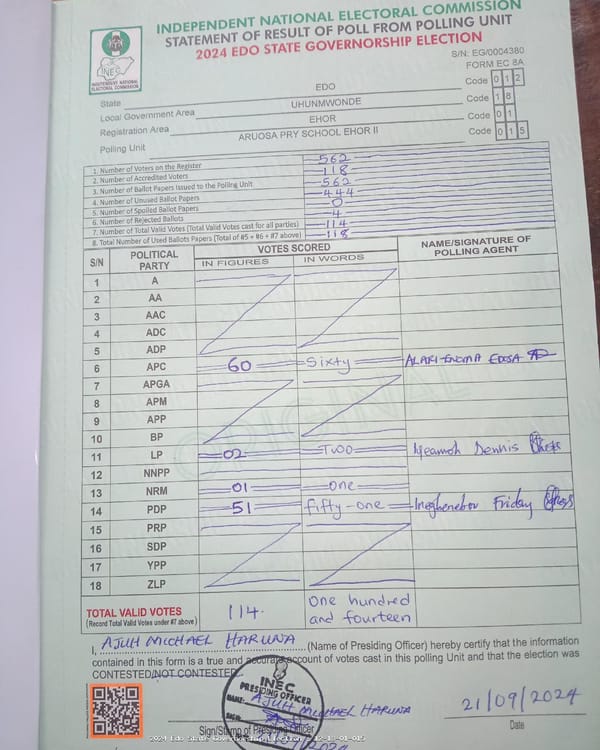 INDEPENDENT NATIONAL ELECTORAL COMMISSION
STATEMENT OF RESULT OF POLL FROM POLLING UNIT
2024 EDO STATE GOVERNORSHIP ELECTION
INEC
INDEPENDENT NATIONAL ELECTORAL COMMISSION
S/N: EG/0004380
FORM EC 8A
State EDO Code 0 1 2
Local Government Area UHUNMWONDE Code 1 8
Registration Area EHOR Code 0 1
Polling Unit ARUOSA PRY SCHOOL EHOR II Code 0 1 5
1. Number of Voters on the Register 562
2. Number of Accredited Voters 118
3. Number of Ballot Papers Issued to the Polling Unit 562
4. Number of Unused Ballot Papers 444
5. Number of Spoiled Ballot Papers 0
6. Number of Rejected Ballots 4
7. Number of Total Valid Votes (Total Valid Votes cast for all parties) 114
8. Total Number of Used Ballots Papers (Total of #5 + #6 + #7 above) 118
S/N POLITICAL PARTY VOTES SCORED NAME/SIGNATURE OF POLLING AGENT
IN FIGURES IN WORDS
1 A
2 AA
3 AAC
4 ADC
5 ADP
6 APC 60 Sixty
7 APGA
8 APM
9 APP
10 BP
11 LP 02 Two Dennis
12 NNPP
13 NRM 01 one
14 PDP 51 fifty-one Friday
15 PRP
16 SDP
17 YPP
18 ZLP
ORIGINAL
TOTAL VALID VOTES 114. One hundred and fourteen
(Record Total Valid Votes under #7 above)
I, AJUH MICHAEL HARUNA (Name of Presiding Officer) hereby certify that the information
contained in this form is a true and accurate account of votes cast in this polling Unit and that the election was
CONTESTED/NOT CONTESTED
INEC
PRESIDING OFFICER
NAME: AJUH MICHAEL HARUNA
SIGN:
21/09/2024
Sign/Stamp of Presiding Officer
Date
2024 Edo State Governorship Election - 12-18-01-015